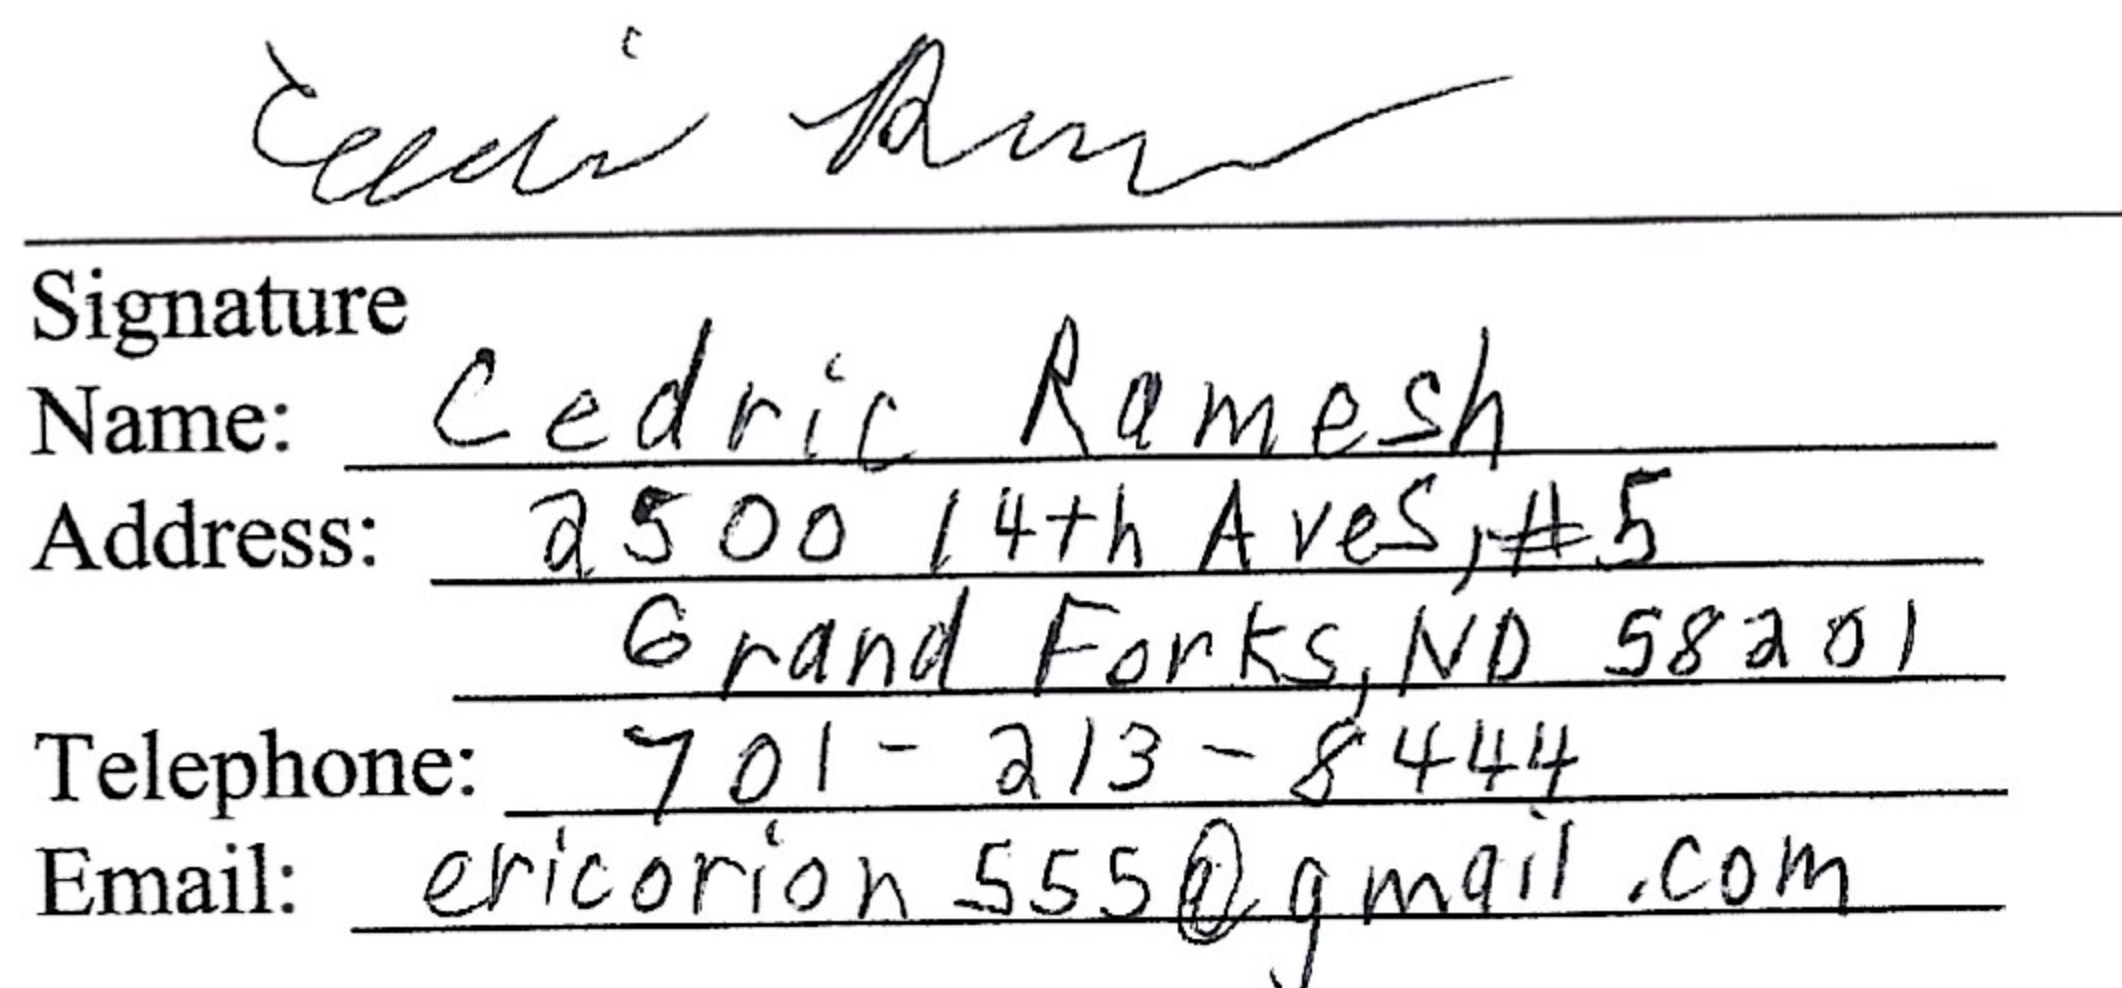 Signature
Name: Cedric Ramesh
Address: 2500 14th Ave S, #5
Grand Forks, ND 58201
Telephone: 701-213-8444
Email: ericorion555@gmail.com